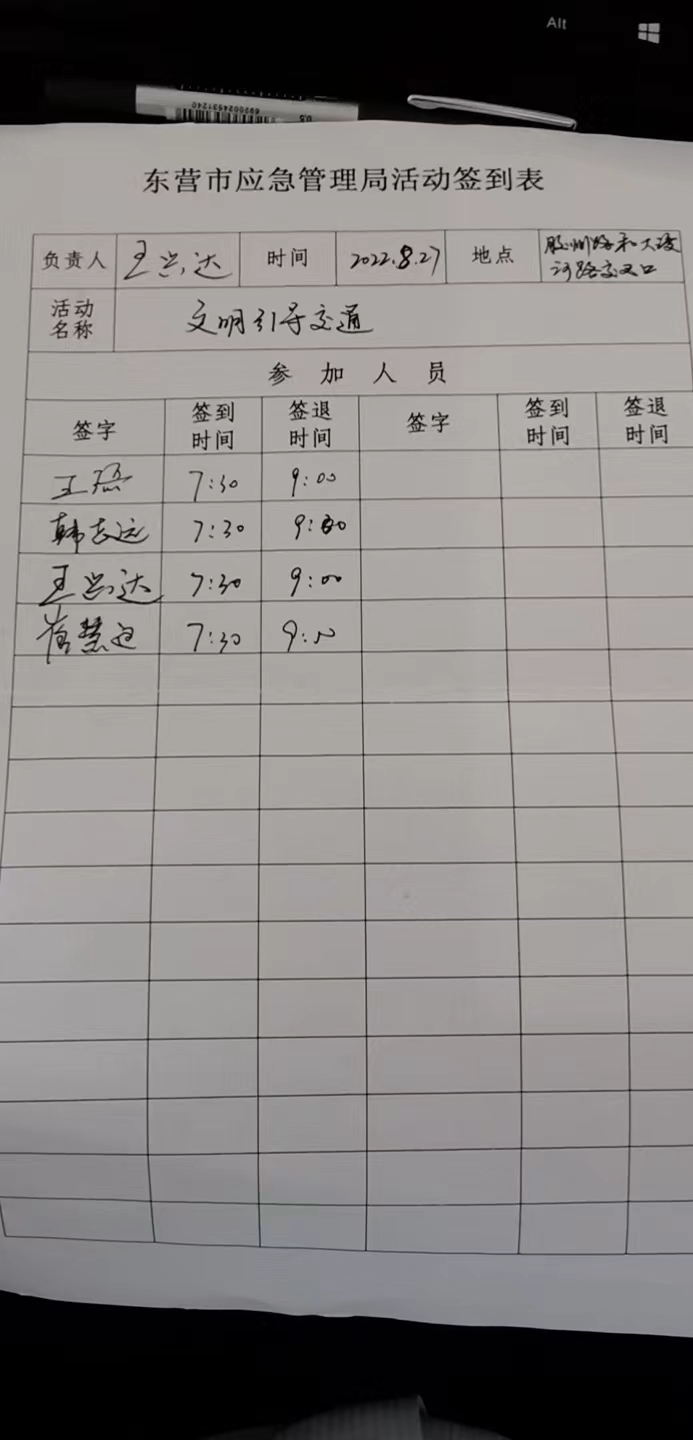 Alt
6920002453124０
0.5
东营市应急管理局活动签到表
负责人 王兴达 时间 2022.8.27 地点 胶州路和大渡
河路交叉口
活动
名称
文明引导交通
参加人员
签字 签到
时间 签退
时间 签字 签到
时间 签退
时间
王 7:30 9:00
韩志远 7:30 9:00
王兴达 7:30 9:00
崔慧 7:30 9:00